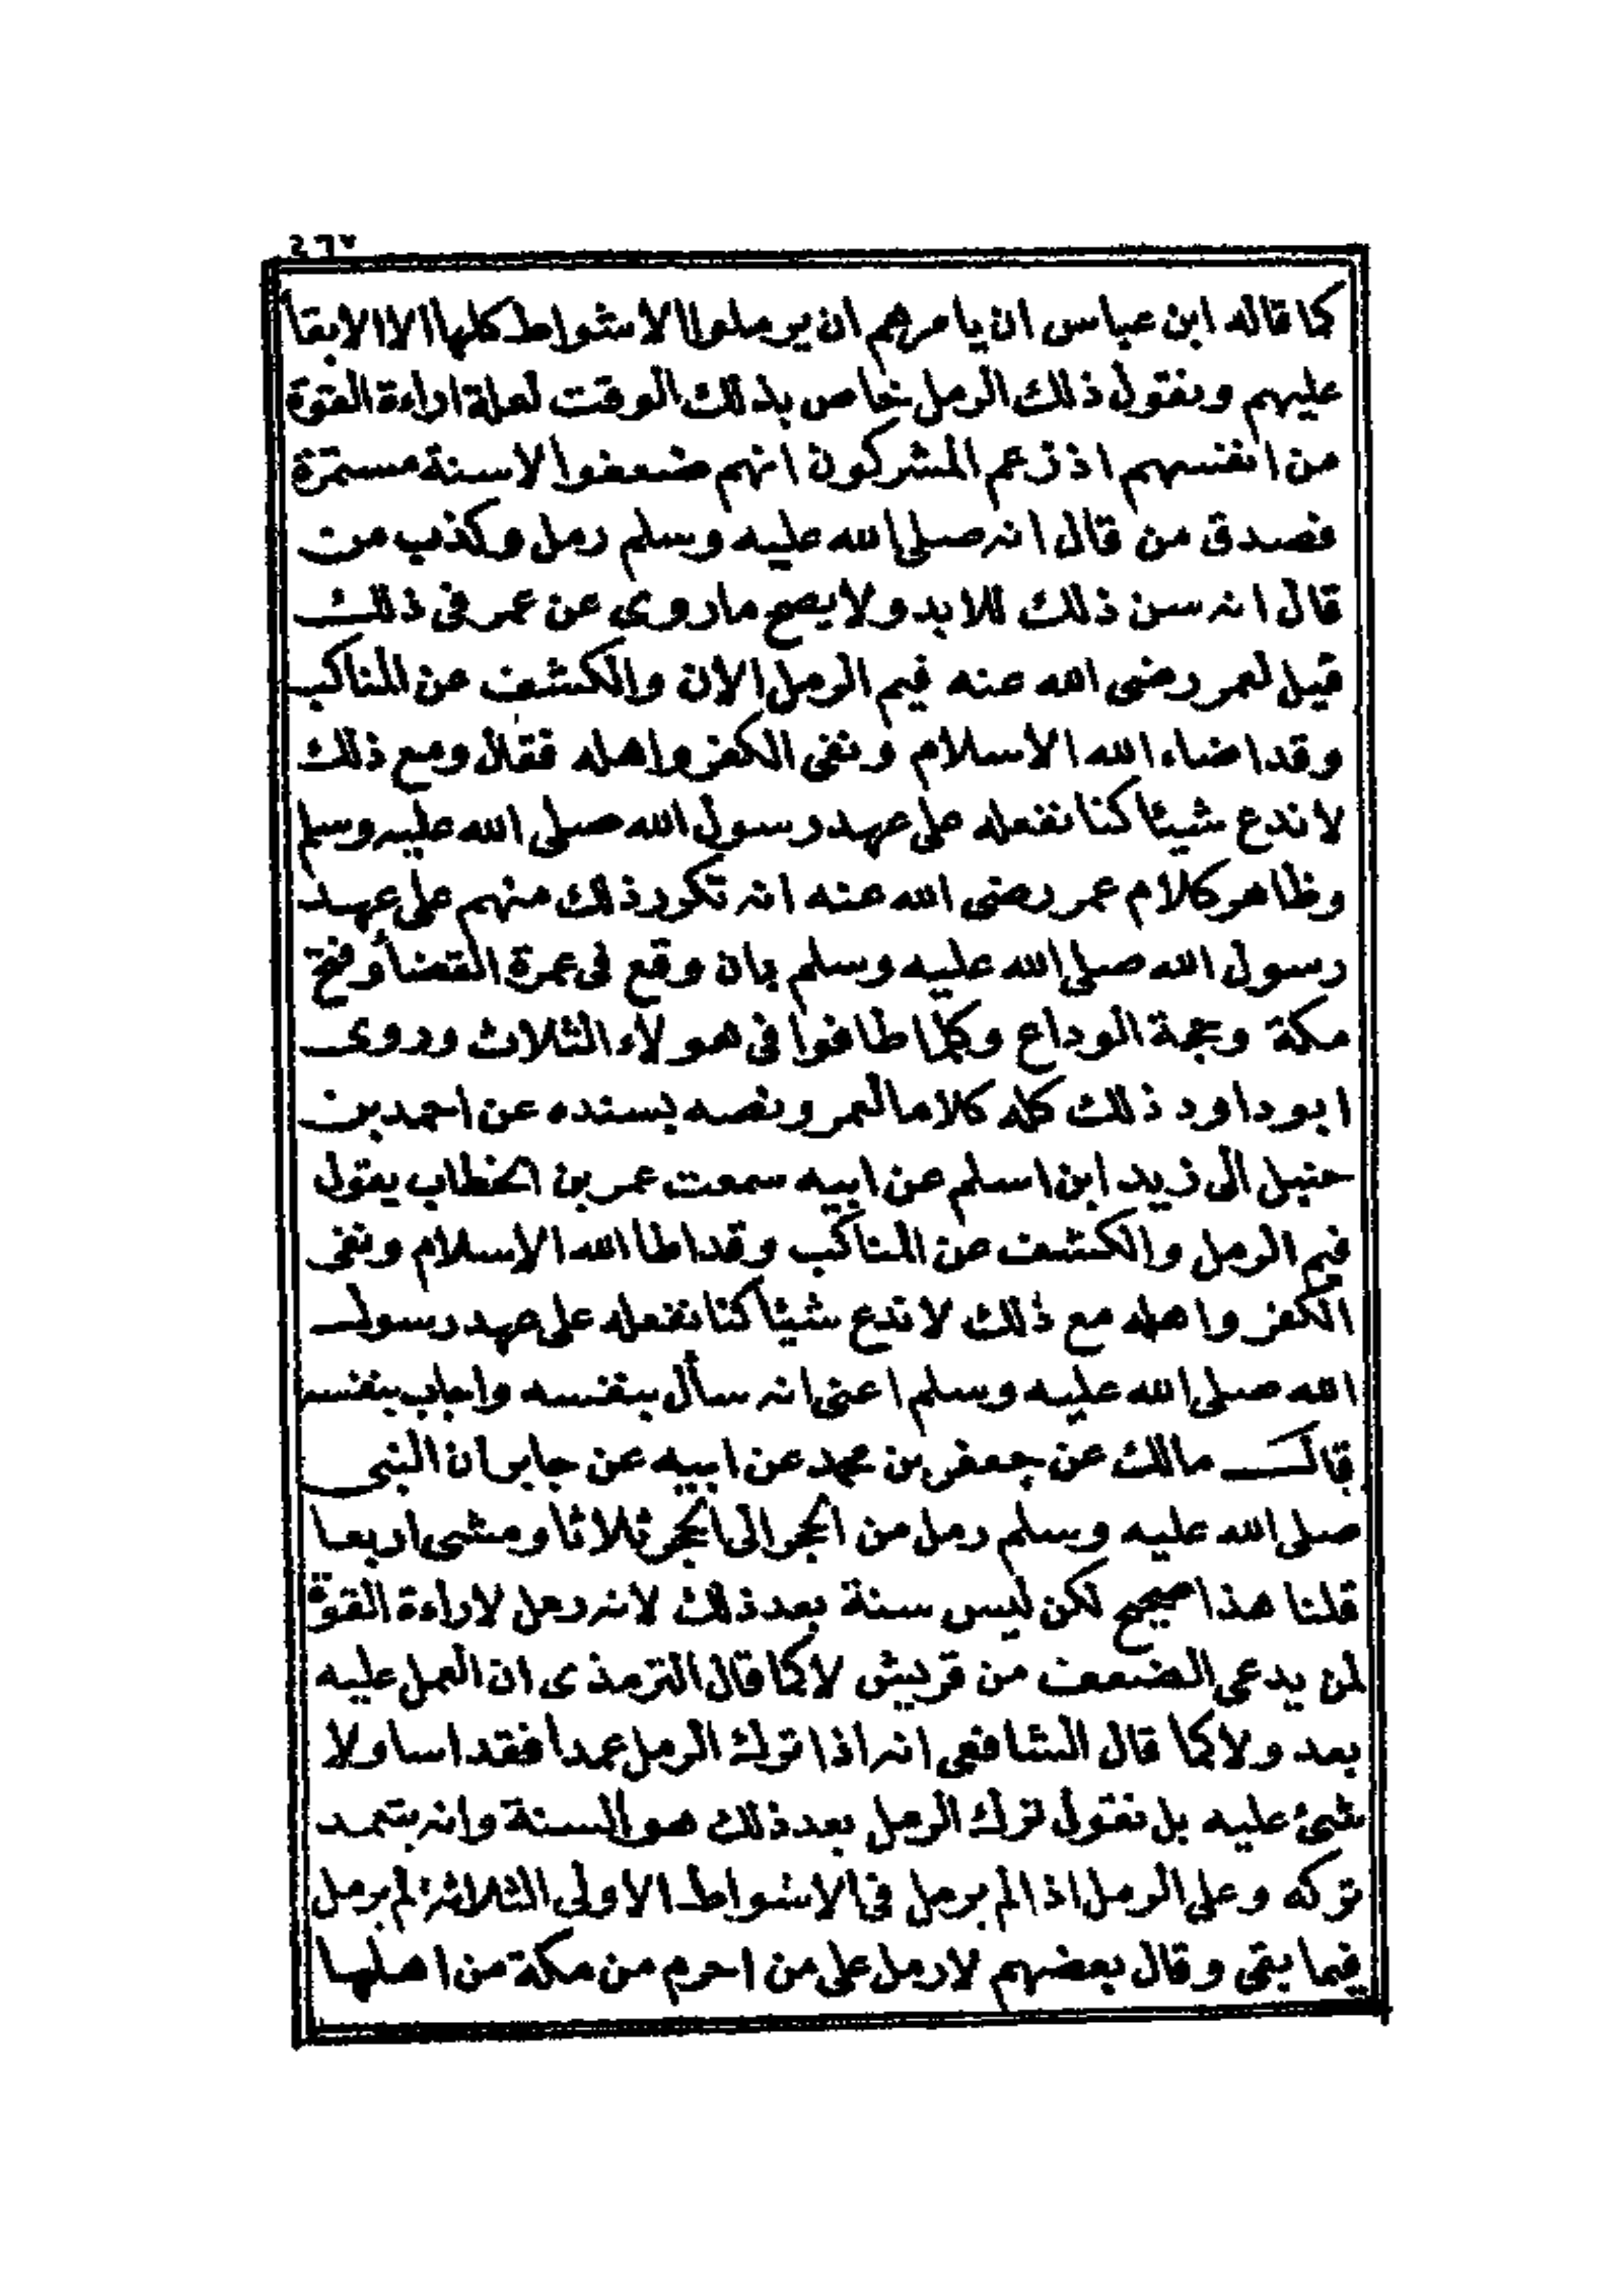 ٤٦٧
كما قاله ابن عباس ان يامرهم ان يرملوا الاشواط كلها الا الابقاء
عليهم ونقول ذلك الرمل خاص بذلك الوقت لعلة اراءة القوة
من انفسهم اذ زعم المشركون انهم ضعفوا لا سنة مستمرة
فصدق من قال انه صلى الله عليه وسلم رمل وكذب من
قال انه سن ذلك للابد ولا يصح ما روى عن عمر فى ذلك
قيل لعمر رضى الله عنه فيم الرمل الان والكشف عن المناكب
وقد اضاء الله الاسلام ونفى الكفر واهله فقال ومع ذلك
لا ندع شيئا كنا نفعله على عهد رسول الله صلى الله عليه وسلم
وظاهر كلام عمر رضى الله عنه انه تكرر ذلك منهم على عهد
رسول الله صلى الله عليه وسلم بان وقع فى عمرة القضاء وفتح
مكة وحجة الوداع وكلما طافوا فى هولاء الثلاث وروى
ابو داود ذلك كله كلاما لعمر ونصه بسنده عن احمد بن
حنبل الى زيد ابن اسلم عن ابيه سمعت عمر بن الخطاب يقول
فيم الرمل والكشف عن المناكب وقد اطا الله الاسلام ونفى
الكفر واهله مع ذلك لا ندع شيئا كنا نفعله على عهد رسول
الله صلى الله عليه وسلم اعنى انه سأل بنفسه واجاب بنفسه
قال مالك عن جعفر بن محمد عن ابيه عن جابر ان النبى
صلى الله عليه وسلم رمل من الحجر الى الحجر ثلاثا ومشى اربعا
قلنا هذا صحيح لكن ليس سنة بعد ذلك لانه رمل لاراءة القوة
لمن يدعى الضعف من قريش لا كما قال الترمذى ان العمل عليه
بعد ولا كما قال الشافعى انه اذا ترك الرمل عمدا فقد اسا ولا
شئ عليه بل نقول ترك الرمل بعد ذلك هو السنة وانه يتعمد
تركه وعلى الرمل اذا لم يرمل فى الاشواط الاولى الثلاثة لم يرمل
فيما بقى وقال بعضهم لا رمل على من احرم من مكة من اهلها